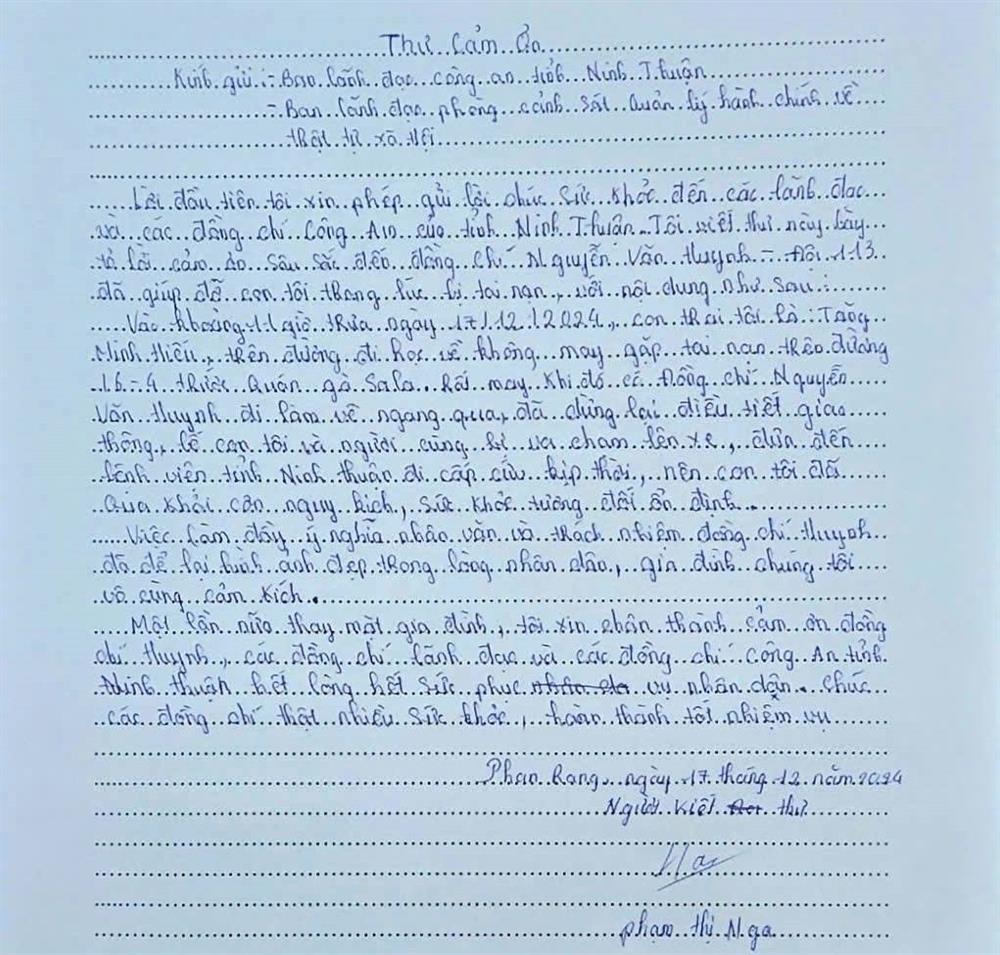 Thư Cảm Ơn
Kính gửi :- Ban lãnh đạo công an tỉnh Ninh Thuận
- Ban lãnh đạo phòng cảnh sát Quản lý hành chính về
thật tự xã hội
Lời đầu tiên tôi xin phép gửi lời chúc sức khỏe đến các lãnh đạo
và các đồng chí Công An của tỉnh Ninh Thuận. Tôi viết thư này bày
tỏ lời cảm ơn sâu sắc đến đồng chí Nguyễn Văn Huynh - Đội 113
đã giúp đỡ con tôi trong lúc bị tai nạn, với nội dung như sau :
Vào khoảng 11 giờ trưa ngày 17/12/2024, con trai tôi là : Trăng
Minh Hiếu, trên đường đi học về không may gặp tai nạn trên đường
16-4 trước Quán gà Sala. Rất may, khi đó có Đồng chí Nguyễn
Văn Huynh đi làm về ngang qua, đã dừng lại điều tiết giao
thông, bế con tôi và người cùng bị va chạm lên xe, đưa đến
bệnh viện tỉnh Ninh thuận đi cấp cứu kịp thời, nên con tôi đã
Qua khỏi cơn nguy kịch, sức khỏe tương đối ổn định.
Việc làm đầy ý nghĩa nhân văn và trách nhiệm đồng chí Huynh
đã để lại hình ảnh đẹp trong lòng nhân dân, gia đình chúng tôi
vô cùng cảm kích.
Một lần nữa thay mặt gia đình, tôi xin chân thành cảm ơn đồng
chí Huynh, các đồng chí lãnh đạo và các đồng chí Công An tỉnh
Ninh thuận hết lòng hết sức phục vụ nhân dân. Chúc
các đồng chí thật nhiều sức khỏe, hoàn thành tốt nhiệm vụ
Phan Rang, ngày 17 tháng 12 năm 2024
Người Viết thư
Nga
phạm thị Nga